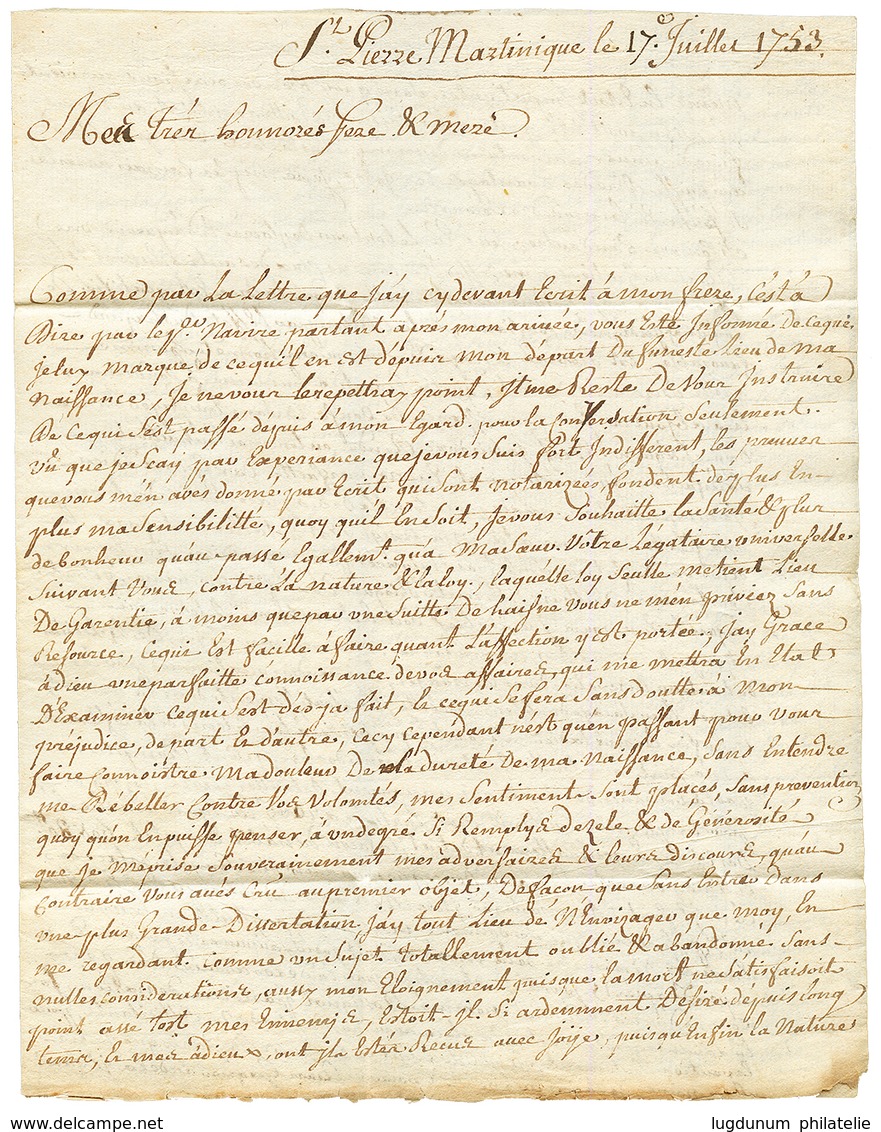 St. Pierre Martinique le 17e. Juillet 1753.
Mes très honnorés Pere & mere.
Comme par La Lettre que J'ay cydevant Ecrit à mon frere, C'est à
Dire par le pr. Navire partant après mon arivée, vous Este Informé De cequi
Jeluy marqué, de cequ'il en est dépuis mon départ Du funeste Lieu de ma
Naissance, Je nevous lerepettray point, Jl me Reste De vous Instruire
De cequi S'est passé dépuis à mon Egard. pour la Conversation Seulement.
vû que jeScay par Experiance quejevous Suis fort Indifferent, les preuves
quevous m'en avés donné par Ecrit qui sont notarizées, fondent de plus En
plus ma Sensibilitté, quoy qu'il En Soit, Jevous Souhaitte la Santé & plus
de bonheur qu'au passé Egallemt. qu'a Ma Sœur Vôtre Légataire universelle
Suivant Vous, contre La nature & la loy, laquélle loy Seulle me tient Lieu
De Garentie, à moins quepar une Suitte De haisne vous ne m'en priviez Sans
Resource, Cequi Est facille à faire quant L'affection y est portée, J'ay Grace
à dieu une parfaitte connoissance de vos affaires, qui me mettra En Etat
D'Examiner cequi S'est dés ja fait, & cequi Se fera Sans doutte à Mon
préjudice, de part & d'autre, Cecy Cependant n'est qu'en passant pour Vous
faire Connoistre Ma douleur De la dureté De ma Naissance, Sans Entendre
me Rébeller Contre Vos Volontés, mes Sentiment Sont placés, Sans prevention
quoy qu'on En puisse penser, à un degré Si Remplys de zele & de Génerosité
que je Méprise Souverainement mes adversaires & leurs discours, qu'au
Contraire Vous avés Crû au premier objet, De façon que Sans Entre Dans
une plus Grande Dissertation J'ay tout Lieu de N'Envizager que moy, En
me regardant comme un Sujet totallement oublié & abandonné Sans
nulles considerations, aussy mon Eloignement puisque la mort ne Satisfaisoit
point assé tost mes Ennemis, Estoit-jl Si ardemment Désiré dépuis long
tems, & mes àdieux, ont jls Estés Recus avec Joije, puisqu'Enfin la Nature
www.delcampe.net
lugdunum philatelie